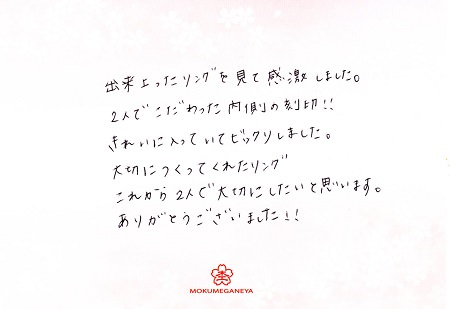 出来上ったリングを見て感激しました。
2人でこだわった内側の刻印!!
きれいに入っていてビックリしました。
大切につくってくれたリング
これから2人で大切にしたいと思います。
ありがとうございました!!
MOKUMEGANEYA